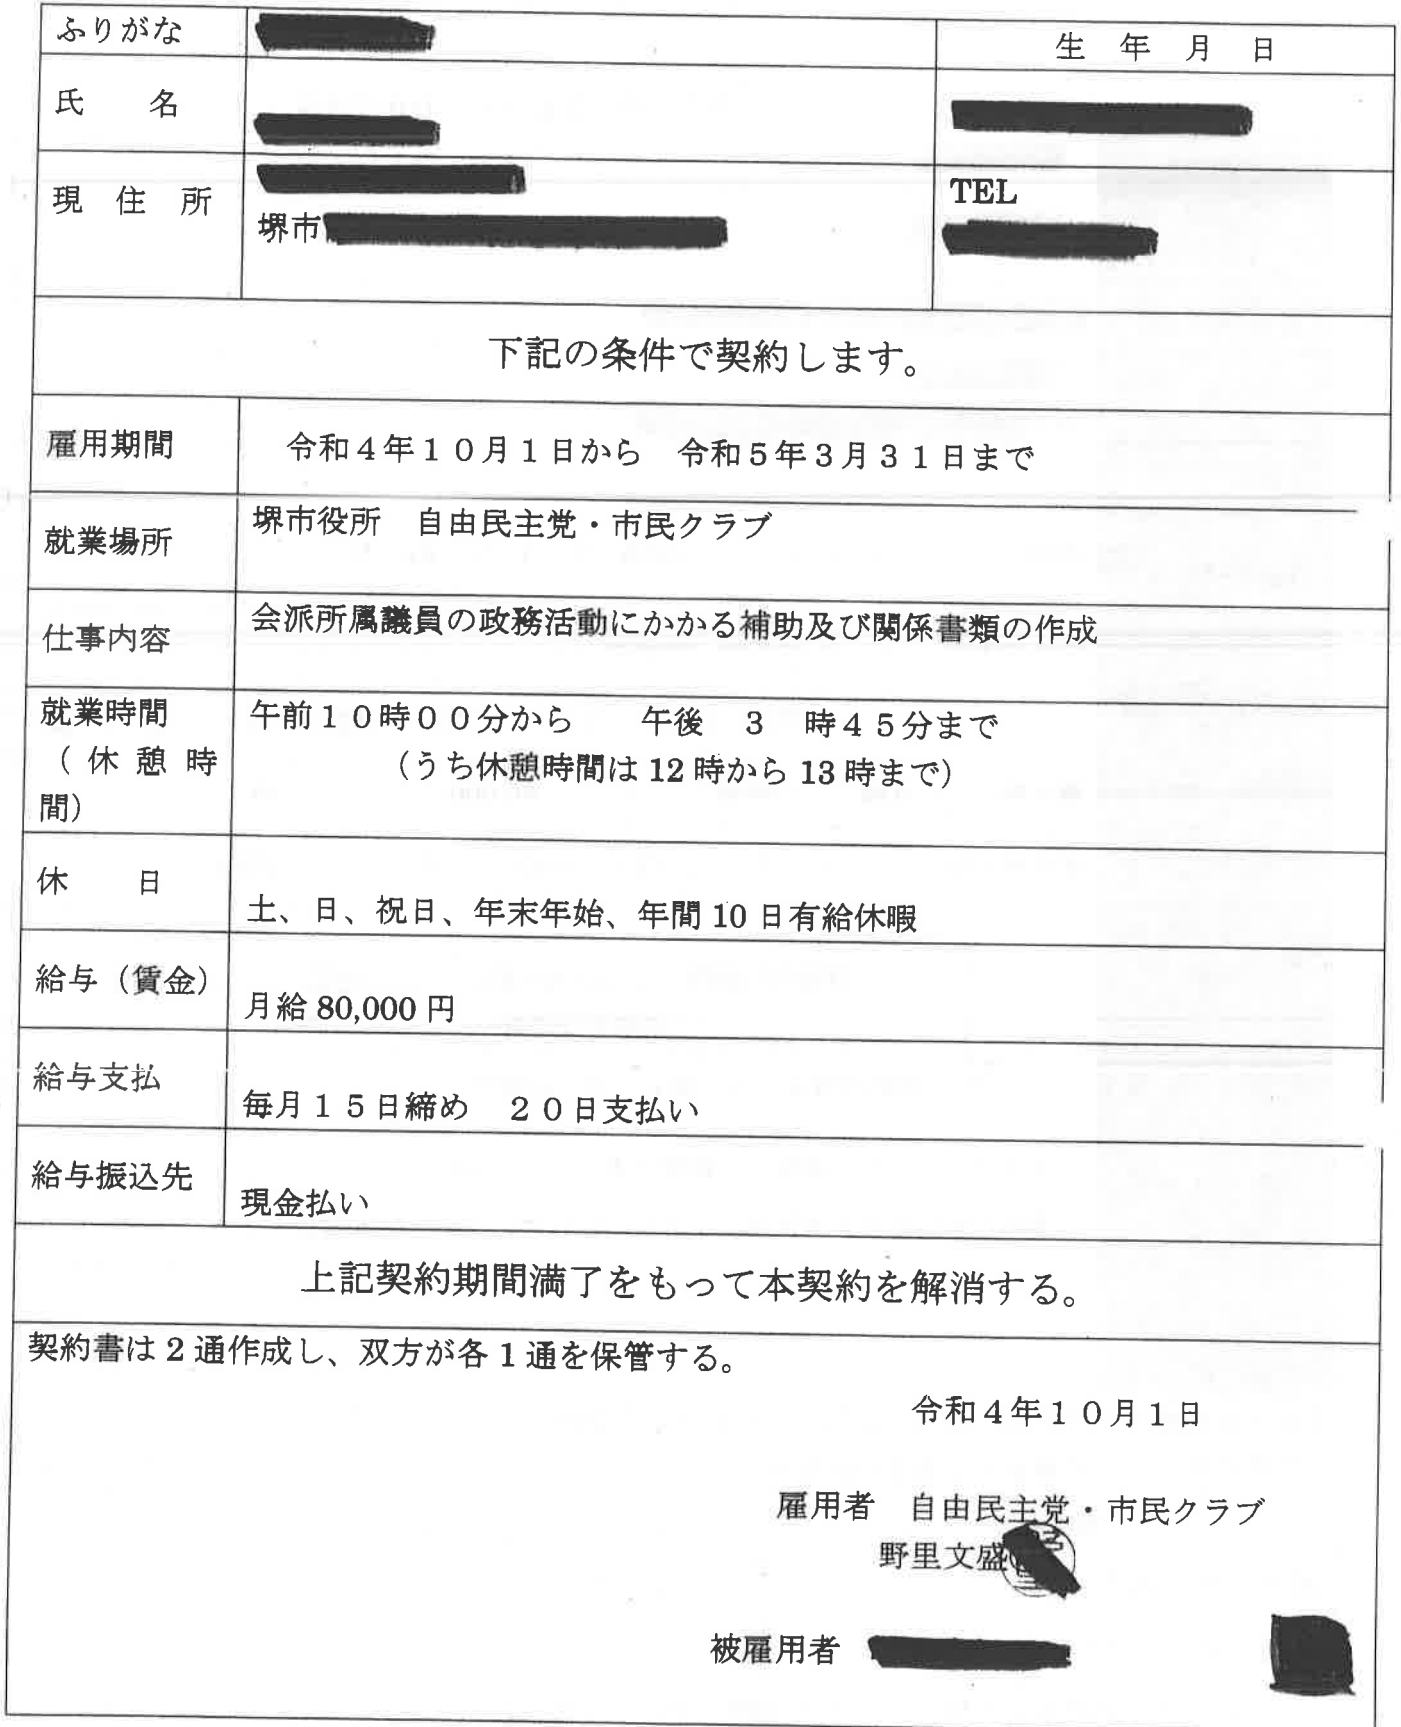 ふりがな
生　年　月　日
氏　　名
現　住　所
堺市
TEL
下記の条件で契約します。
雇用期間　令和４年１０月１日から　令和５年３月３１日まで
就業場所　堺市役所　自由民主党・市民クラブ
仕事内容　会派所属議員の政務活動にかかる補助及び関係書類の作成
就業時間　午前１０時００分から　　午後　３　時４５分まで
（休憩時　（うち休憩時間は 12 時から 13 時まで）
間）
休　　日
土、日、祝日、年末年始、年間 10 日有給休暇
給与（賃金）
月給 80,000 円
給与支払
毎月１５日締め　２０日支払い
給与振込先
現金払い
上記契約期間満了をもって本契約を解消する。
契約書は 2 通作成し、双方が各 1 通を保管する。
令和４年１０月１日
雇用者　自由民主党・市民クラブ
野里文盛
被雇用者